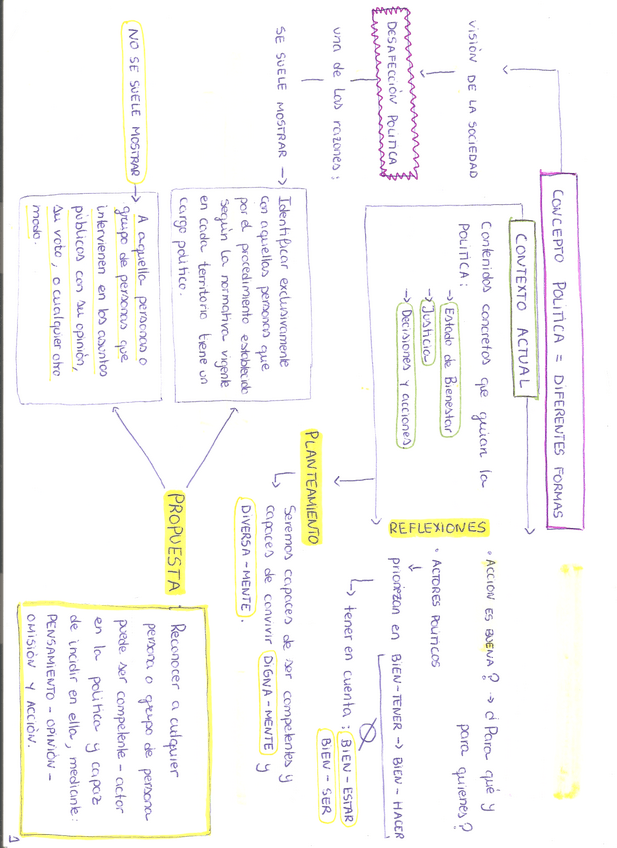 CONCEPTO POLÍTICA = DIFERENTES FORMAS
VISIÓN DE LA SOCIEDAD
DESAFECCIÓN POLÍTICA
una de las razones:
SE SUELE MOSTRAR →
Identificar exclusivamente
con aquellas personas que
por el procedimiento establecido
según la normativa vigente
en cada territorio tiene un
cargo político.
NO SE SUELE MOSTRAR →
A aquella persona o
grupo de personas que
intervienen en los asuntos
públicos con su opinión,
su voto, o cualquier otro
modo.
CONTEXTO ACTUAL
Contenidos concretos que guían la
POLÍTICA:
→ Estado de Bienestar
→ Justicia
→ Decisiones y acciones
REFLEXIONES
• ACCIÓN ES BUENA? → ¿Para qué y
para quienes?
• ACTORES POLÍTICOS
priorizan en BIEN-TENER → BIEN-HACER
↳ tener en cuenta: BIEN-ESTAR
BIEN-SER
PLANTEAMIENTO
↳ Seremos capaces de ser competentes y
capaces de convivir DIGNA-MENTE y
DIVERSA-MENTE.
PROPUESTA:
Reconocer a culquier
persona o grupo de persona
puede ser competente-actor
en la política y capaz
de incidir en ella, mediante:
PENSAMIENTO-OPINIÓN-
OMISIÓN Y ACCIÓN.
1